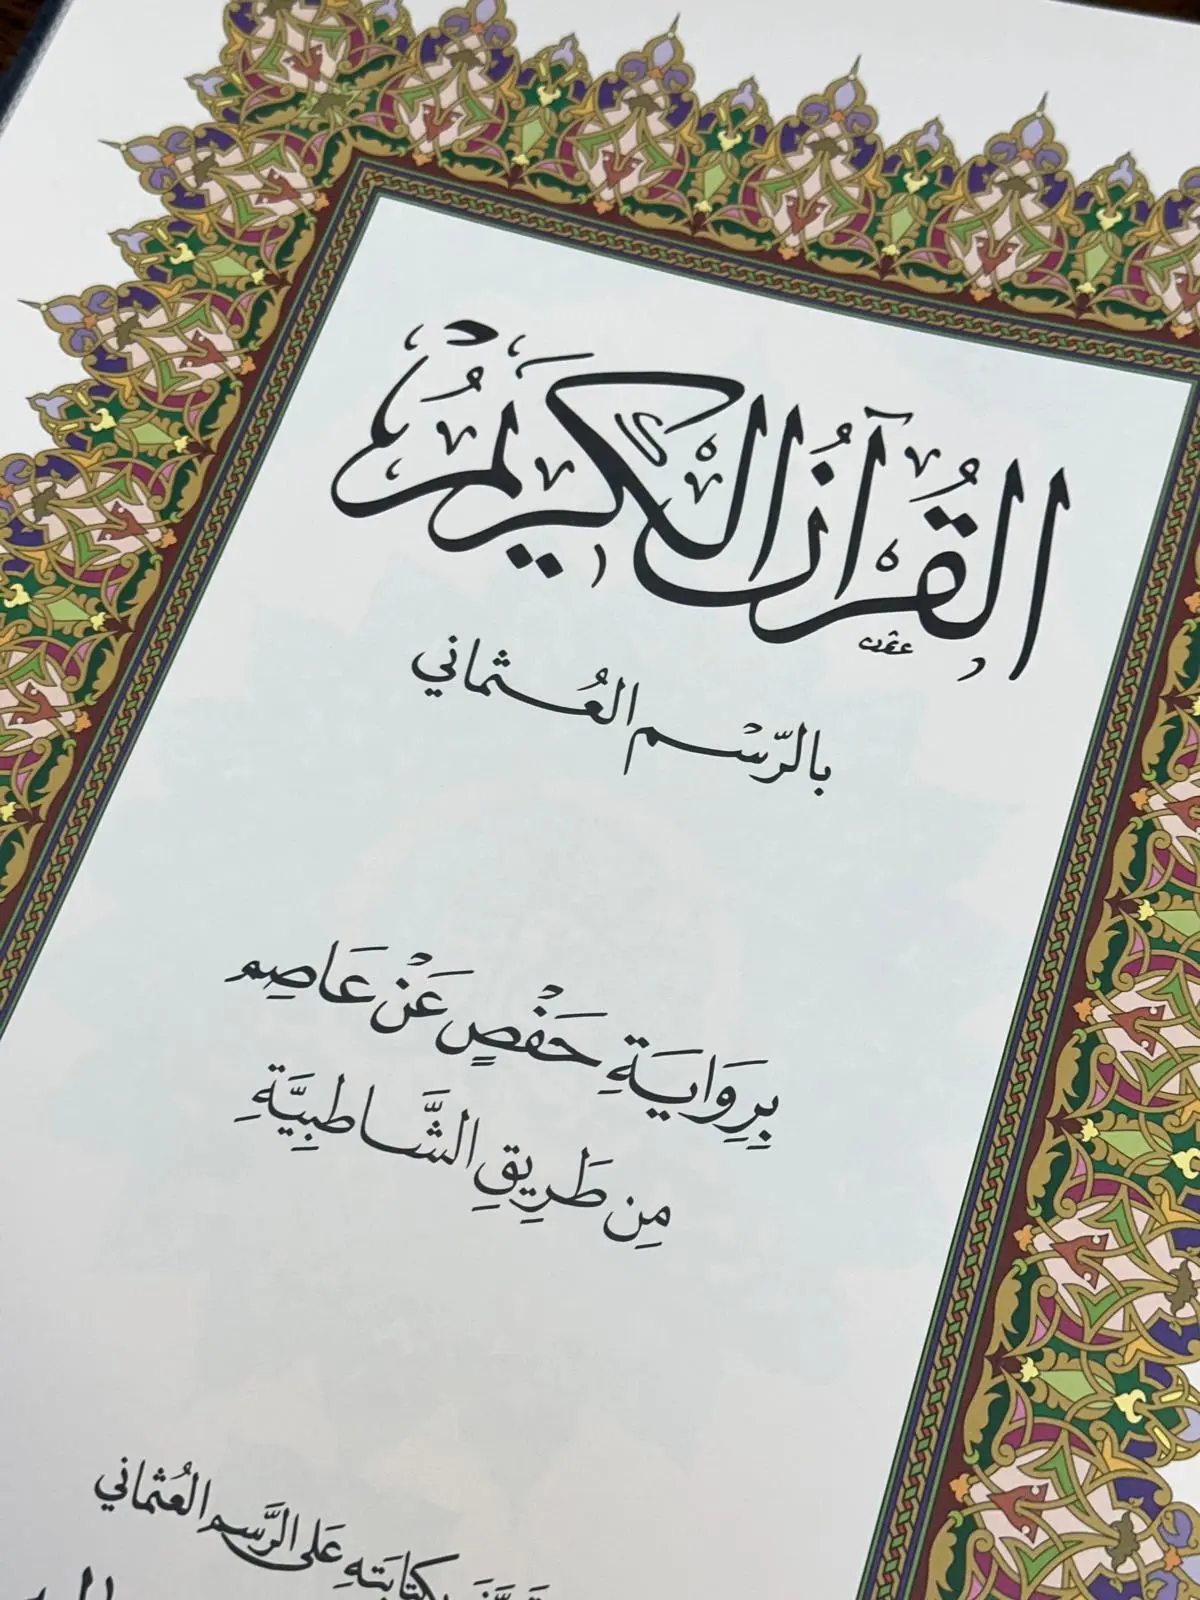 القُرآنُ الكَرِيمُ
بالرّسْم العُثماني
بِرِوَايَةِ حَفْصٍ عَنْ عَاصِم
مِن طَرِيقِ الشَّاطبِيَّةِ
بكتابَتهِ عَلى الرَّسم العُثماني